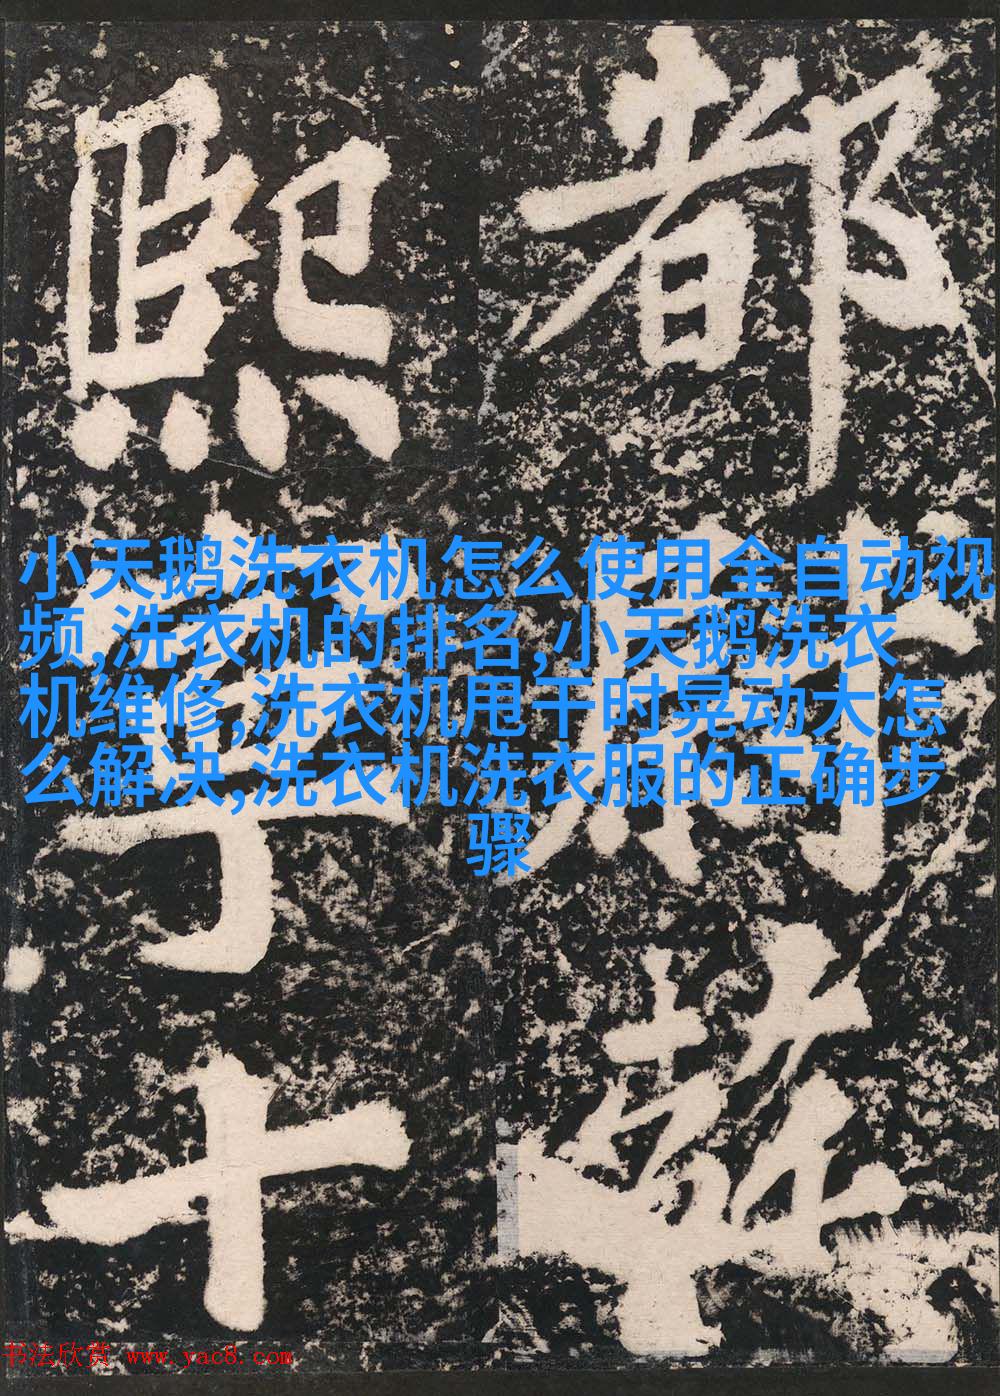 都
熙寧十
小天鹅洗衣机怎么使用全自动视
频,洗衣机的排名,小天鹅洗衣
机维修,洗衣机甩干时晃动大怎
么解决,洗衣机洗衣服的正确步
骤
书法欣赏 www.yac8.com